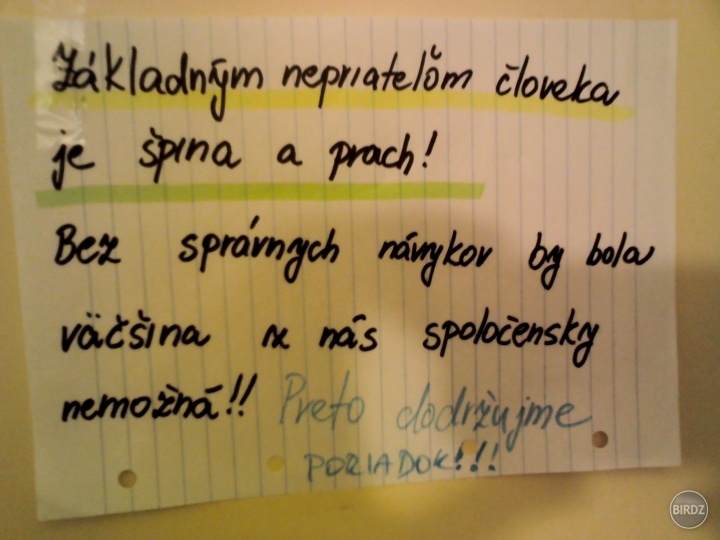 Základným nepriateľom človeka
je špina a prach!
Bez správnych návykov by bola
väčšina z nás spoločensky
nemožná!! Preto dodržujme
PORIADOK!!!
BIRDZ